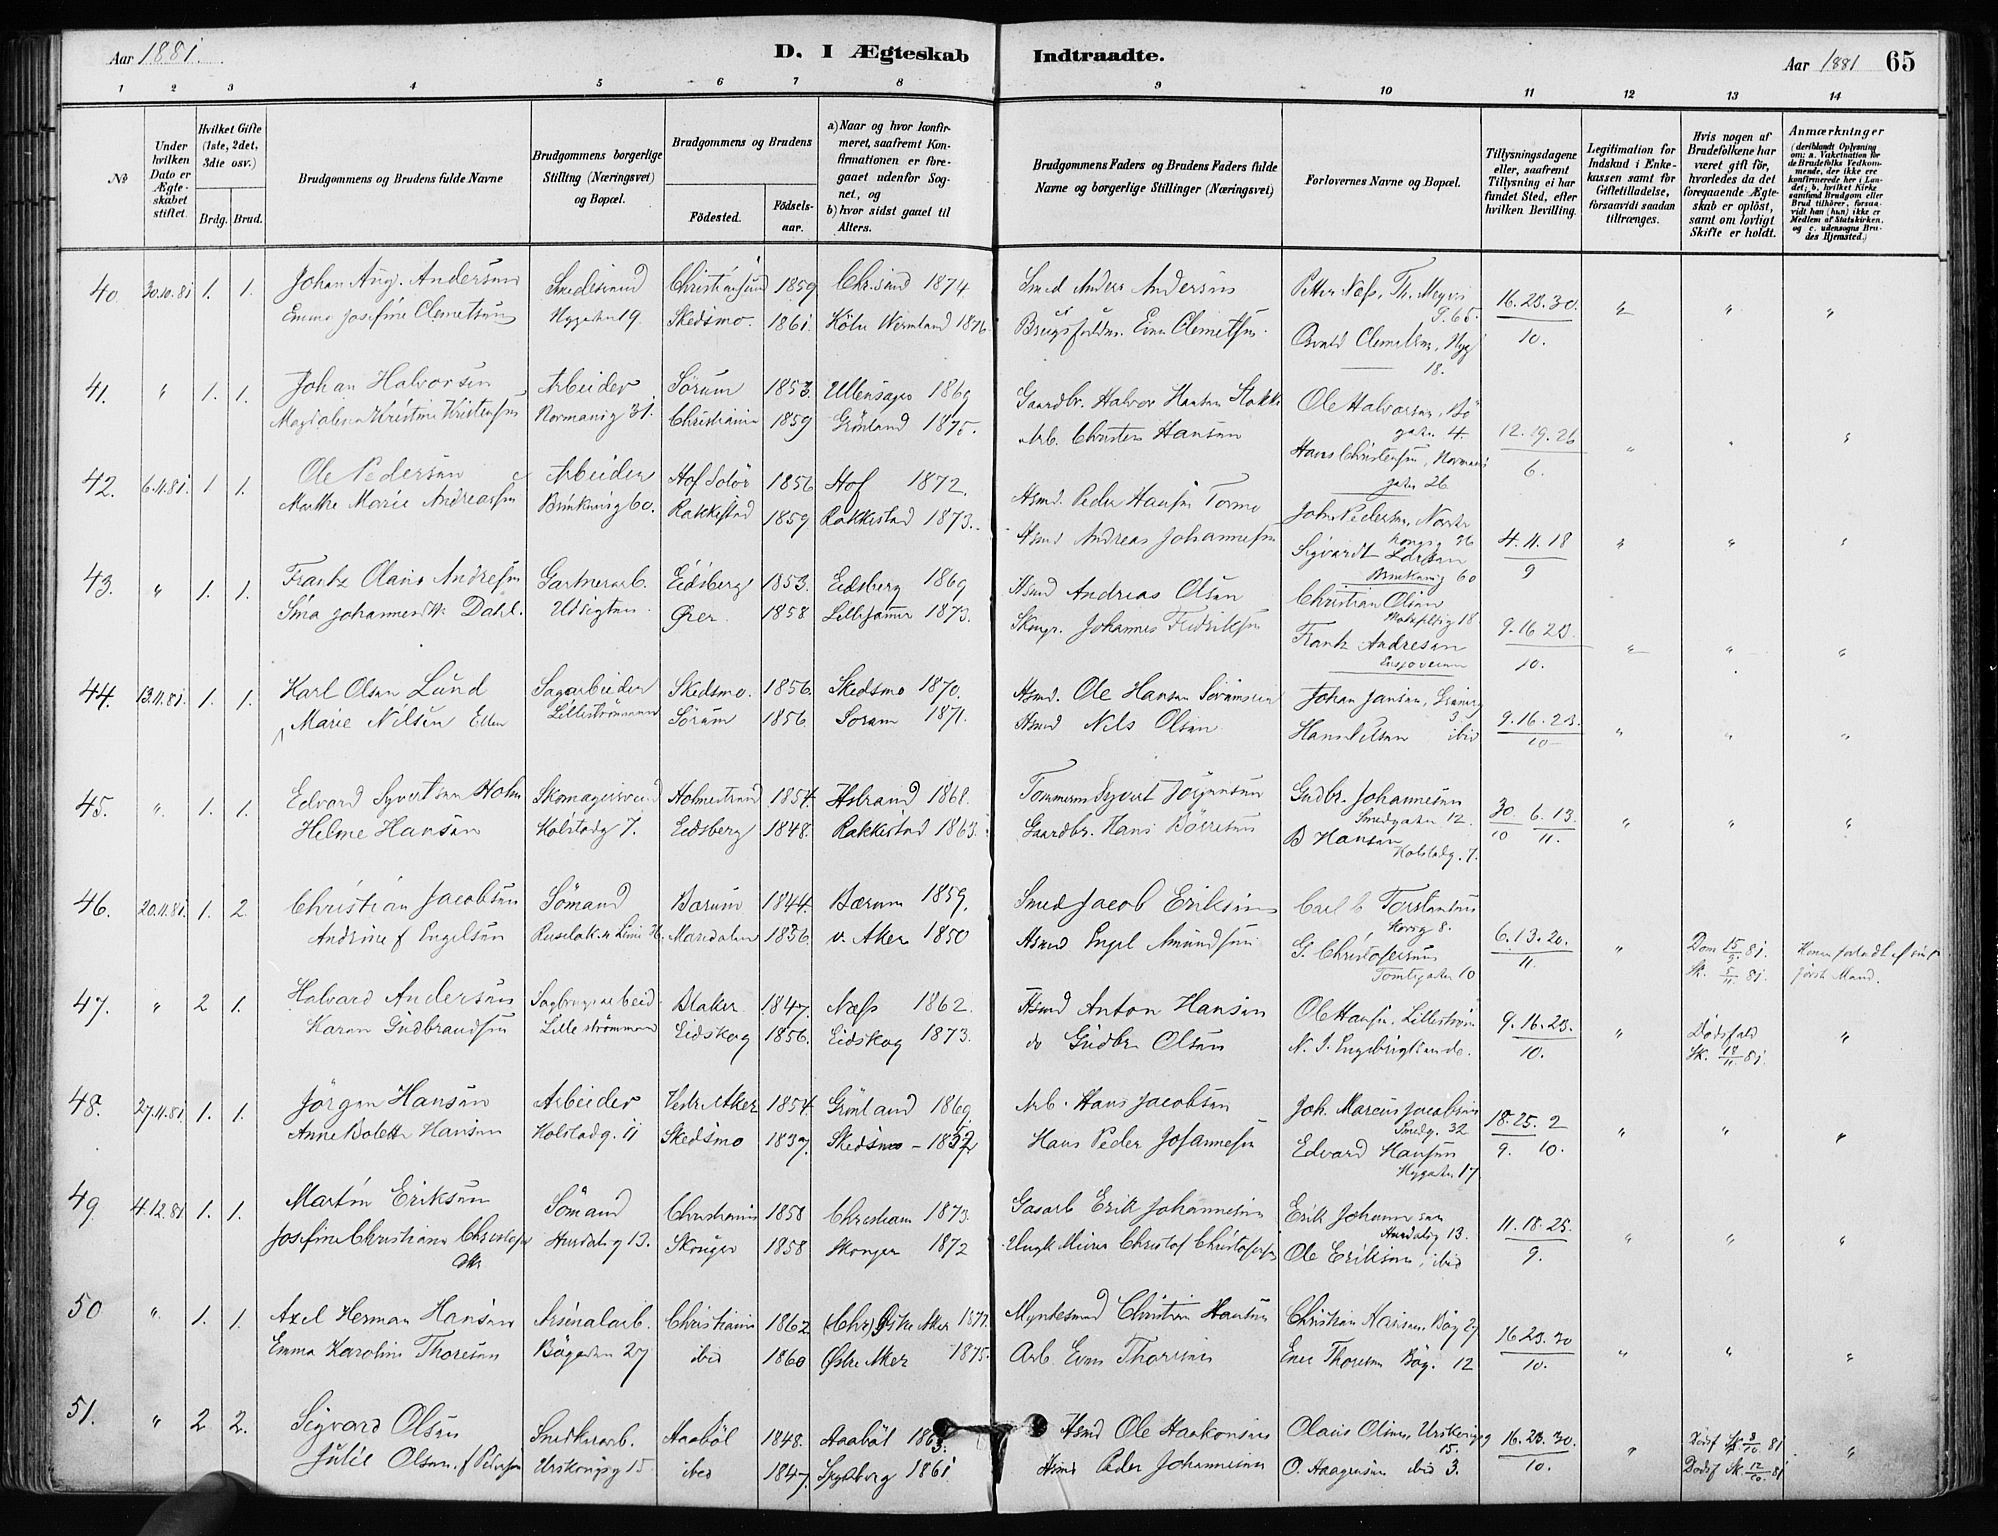 Aar 1881.
D. I Ægteskab Indtraadte.
Aar 1881 65
1 2 3 4 5 6 7 8 9 10 11 12 13 14
No
Under hvilken Dato er Ægteskabet stiftet.
Hvilket Gifte (1ste, 2det, 3die osv.)
Brdg. Brud.
Brudgommens og Brudens fulde Navne
Brudgommens borgerlige Stilling (Næringsvei) og Bopæl.
Brudgommens og Brudens
Födested. Födselsaar.
a) Naar og hvor konfirmeret, saafremt Konfirmationen er foregaaet udenfor Sognet, og
b) hvor sidst gaaet til Alters.
Brudgommens Faders og Brudens Faders fulde Navne og borgerlige Stillinger (Næringsvei)
Forlovernes Navne og Bopæl.
Tillysningsdagene eller, saafremt Tillysning ei har fundet Sted, efter hvilken Bevilling.
Legitimation for Indskud i Enkekassen samt for Giftetilladelse, forsaavidt saadan tiltrænges.
Hvis nogen af Brudefolkene har været gift för, hvorledes da det foregaaende Ægteskab er oplöst, samt om lovligt Skifte er holdt.
Anmærkninger (deriblandt Oplysning om: a. Vakcination for de Brudefolks Vedkommende, der ikke ere konfirmerede her i Landet; b. hvilket Kirkesamfund Brudgom eller Brud tilhörer, forsaavidt han (hun) ikke er Medlem af Statskirken, og c. udensogns Brudes Hjemsted.)
40 30.10.81 1. 1. Johan Aug. Andersen Smedesvend Christiansund 1859 Chr.sund 1874 Smed Anders Andersen Petter Næss, Th. Meyers G. 65. 16.23.30.
Emma Josefine Clemetsen Nygaden 19. Skedsmo. 1861 Köln Wermland 1876 Clemetsen. Osvald Clemetsen, Nyg 18. 10.
41. " 1. 1. Johan Halvorsen Arbeider Sörum 1853. Ullensager 1869 Gaardbr. Halvor Hansen Ole Halvorsen, Bö gaden 4. 12.19.26
Magdalena Kristine Kristensen Normannsg 31. Christiania 1859 Grönland 1875. Arb. Christen Hansen Hans Christensen, Normans gaden 26 6.
42. 6.11.81. 1. 1. Ole Pedersen Arbeider Hof Solör 1856 Hof 1872. Hsmd. Peder Hansen Tormo John Pedersen, Nordre 26 4.11.18
Mathe Marie Andreassen Brinkensg 60. Rakkestad 1859 Rakkestad 1873. Hsmd Andreas Johannesen Sigvardt Larsen Brinkensg 60 9
43. " 1. 1. Frantz Olaus Andresen Gartnerarb. Eidsberg 1853. Eidsberg 1869 Hsmd Andreas Olsen Christian Olsen 18 9.16.23.
Sina Johannesdtr. Dahl. Udsigten. Öier. 1858 Lillehammer 1873. Johannes Fredriksen Frantz Andresen 10.
44. 13.11.81. 1. 1. Karl Olsen Lund Sagarbeider Skedsmo. 1856. Skedsmo 1870. Hsmd. Ole Hansen Johan Jansen, 3 9.16.23.
Marie Nilsen Ellen Lilleströmmen Sörum 1856 Sorum 1871. Hsmd Nils Olsen Hans Nilsen ibid 10
45. " 1. 1. Edvard Syvertsen Holm Skomagersvend Holmestrand 1854. Hstrand 1868. Tömmerm Syvert Jörgensen Gudbr. Johannesen Smedgaden 12. 30. 6.13.
Helene Hansen Holstadg 7. Eidsberg 1848. Rakkestad 1863. Gaardbr. Hans Börresen B Hansen Holstadg. 7. 10 11.
46. 20.11.81. 1. 2. Christian Jacobsen Sömand Bærum 1844. Bærum 1859. Smed Jacob Eriksen Carl C Torstensen, 8. 6.13.20.
Andrine f Engelsen Mandalen 1836 v. Aker 1850 Hsmd Engel Amundsen G. Christofersen Tomtegaden 10 11. Dom 15/9 81. Sk. 5/11 81. Mand.
47. " 2 1. Halvard Andersen Sagbrugsarbeid Blaker 1847. Næss 1862. Hsmd Anton Hansen Ole Hansen, Lilleström 9.16.23.
Karen Gudbrandsen Lille strömmen Eidskog 1856. Eidskog 1873. do Gudbr. Olsen N. J. Engebrigtsen do. 10. Dödsfald Sk. 18/11 81.
48. 27.11.81 1. 1. Jörgen Hansen Arbeider Vestr. Aker 1854. Grönland 1869 Arb. Hans Jacobsen Joh. Marcus Jacobsen Smedg. 32 18.25. 2
Anne Bolette Hansen Holstadg. 11 Skedsmo 1837. Skedsmo - Hans Peder Johannesen Edvard Hansen Nygaden 17 9. 10.
49 4.12.81 1. 1. Martin Eriksen Sömand Christiania 1858 Christiania 1873. Gasarb Erik Johannesen Erik Johannesen Hurdalsg 13. 11.18.25.
Josefine Christiane Christofersen Hurdalsg 13. Skouger 1858 Skouger 1872 Christof Christofersen Ole Eriksen, ibid 9.
50 " 1. 1. Axel Herman Hansen Arsenalarb. Christiania 1862 (Chr) Östre Aker 1877. Christian Hansen Christian Hansen, Bög 27 16.23.30
Emma Karoline Thoresen Bögaden 27 ibid 1860 Östre Aker 1875. Arb. Thoresen Thoresen Bög. 12 10.
51. " 2 2. Sigvard Olsen Snedkerarb. Aaböl 1848. Aaböl 1863. Hsmd Ole Haakonsen Olaus Olsen, Urskougsg 15. 16.23.30. Dödsf Sk 3/10 81
Julie Olsen f. Pedersen Urskougsg 15 ibid 1847. 1861 Hsmd Peder Johannesen O. Haagensen ibid 3. 10. Dödsf Sk. 12/10 81